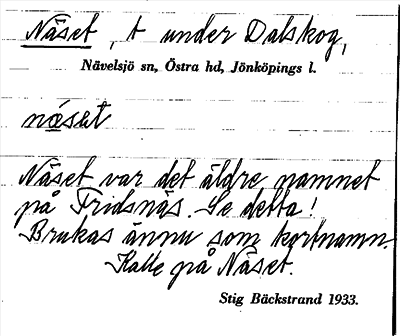 Näset, t under Dalskog,
Nävelsjö sn, Östra hd, Jönköpings l.
näset
Näset var det äldre namnet
på Fridsnäs. Se detta!
Brukas ännu som kortnamn.
Kalle på Näset.
Stig Bäckstrand 1933.